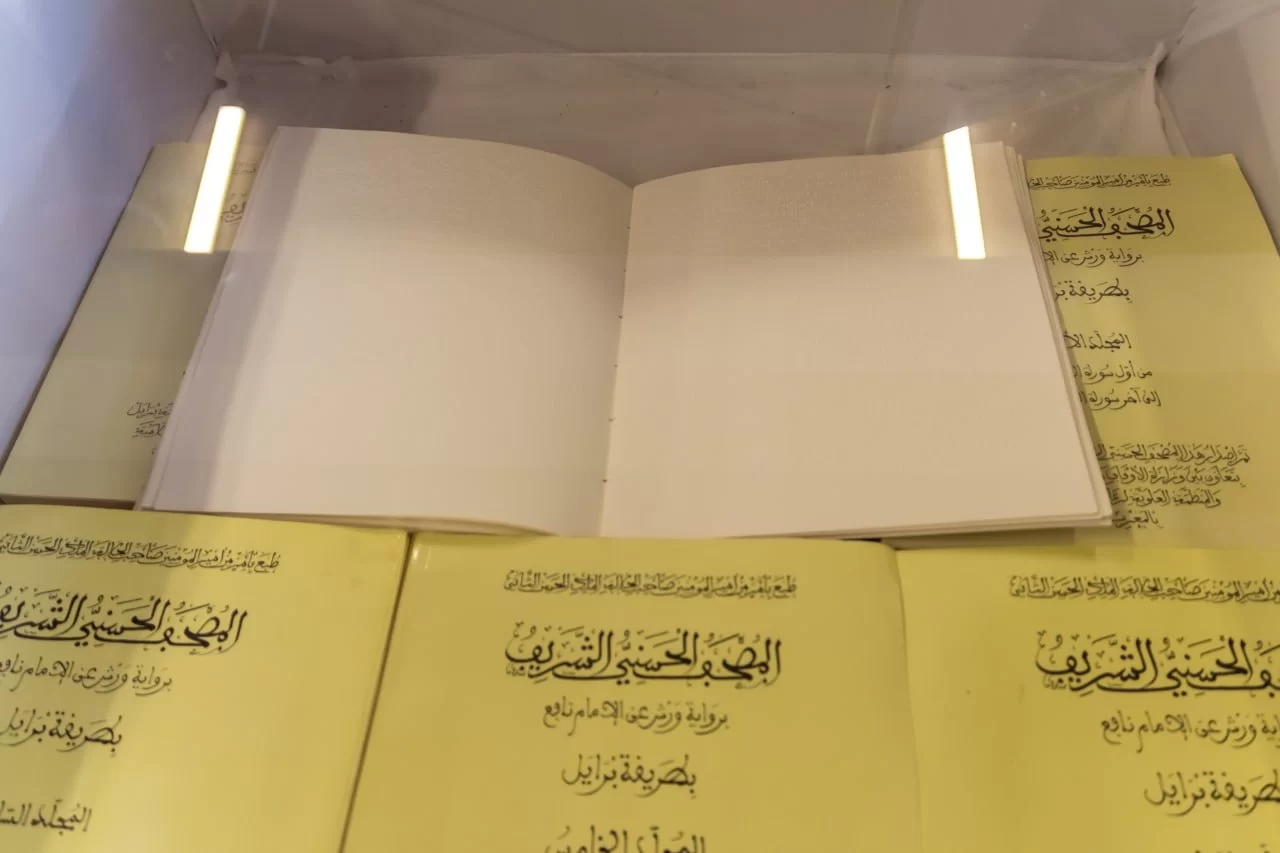 طبع بأمر من أمير المؤمنين صاحب
المصحف الحسني
برواية ورش عن الإ
بطريقة بر
المجلد الأ
من أول سورة
إلى آخر سورة
تم إصدار هذا المصحف الحسني
بتعاون بين وزارة الأوقاف
والمنظمة العلوية لر
بالمغرب
طبع بأمر من أمير المؤمنين صاحب الجلالة الملك الحسن الثاني
المصحف الحسني الشريف
برواية ورش عن الإمام نافع
بطريقة برايل
المجلد الخامس
طبع بأمر من أمير المؤمنين صاحب الجلالة الملك الحسن الثاني
المصحف الحسني الشريف
برواية ورش عن الإمام نافع
بطريقة برايل
المجلد
من أمير المؤمنين صاحب الجلالة الملك الحسن الثاني
الحسني الشريف
ورش عن الإمام نافع
بطريقة برايل